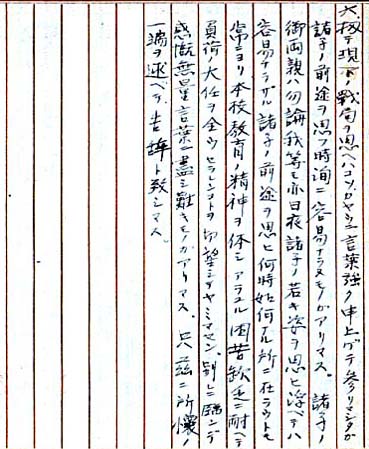 大極デ現下ノ戦局ヲ思ヘバコソカヤウニ言葉強ク申上ゲテ参リマシタガ
諸子ノ前途ヲ思フ時洵ニ容易ナラヌモノガアリマス。諸子ノ
御両親ハ勿論我等モ亦日夜諸子ノ若キ姿ヲ思ヒ浮ベテハ
容易ナラザル諸子ノ前途ヲ思ヒ何時如何ナル所ニ在ラウトモ
常ニヨリ本校教育ノ精神ヲ体シアラユル困苦欠乏ニ耐ヘテ
負荷ノ大任ヲ全ウセラレンコトヲ切望シテヤミマセン。別レニ臨ンデ
感慨無量言葉ニ盡シ難キモノガアリマス。只茲ニ所懐ノ
一端ヲ述ベテ告辞ト致シマス。